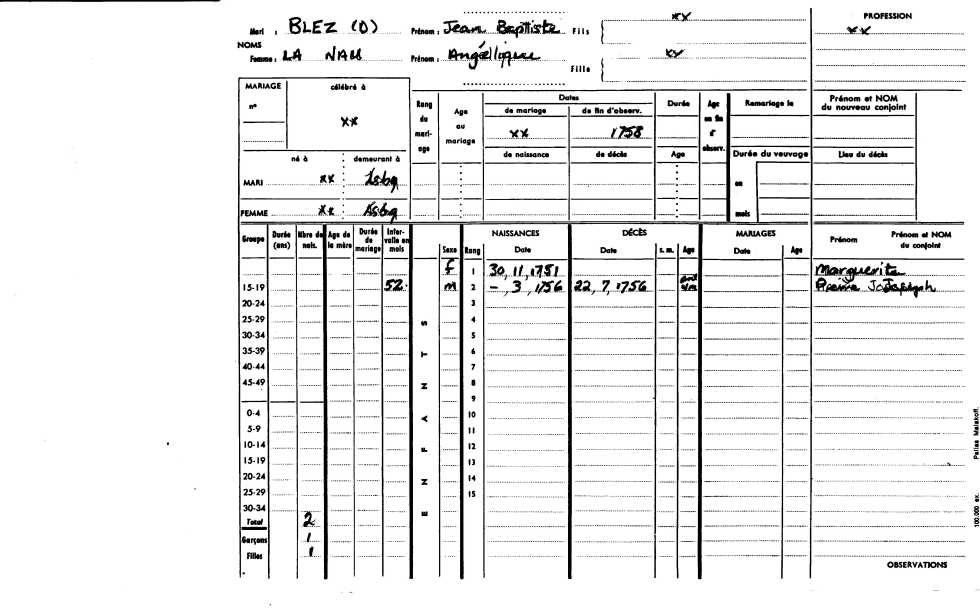 Mari : BLEZ (D) Prénom : Jean Baptiste Fils { xx PROFESSION
xx
NOMS
Femme : LA NAU Prénom : Angéllique Fille { xx
MARIAGE célébré à
n° xx
Rang du mariage Age au mariage Dates Durée Age en fin d'observ. Remariage le Prénom et NOM du nouveau conjoint
de mariage de fin d'observ.
xx 1758
de naissance de décès Age Durée du veuvage Lieu du décès
né à demeurant à
MARI xx Lsbg en
FEMME xx Lsbg mois
Groupe Durée (ans) Nbre de nais. Age de la mère Durée de mariage Intervalle en mois Sexe Rang NAISSANCES Date DÉCÈS Date s. m. Age MARIAGES Date Age Prénom Prénom et NOM du conjoint
f 1 30, 11, 1751 Marguerite
15-19 52. m 2 - , 3 , 1756 22, 7, 1756 4m
20-24 3
25-29 4
30-34 5
35-39 6
40-44 7
45-49 8
9
0-4 10
5-9 11
10-14 12
15-19 13
20-24 14
25-29 15
30-34
ENFANTS
Total 2
Garçons 1
Filles 1
OBSERVATIONS
100.000 ex. Paties Malakoff.